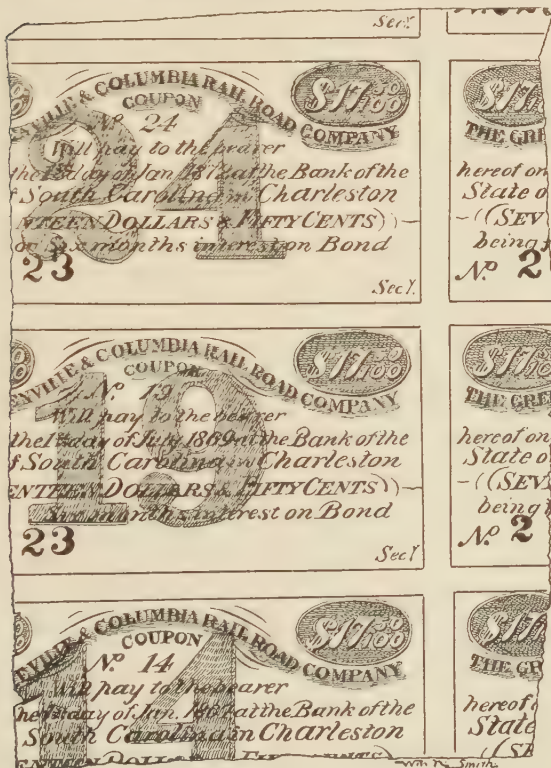 Secy.
ENVILLE & COLUMBIA RAIL ROAD COMPANY
$17 50/100
COUPON
No. 24
24
Will pay to the bearer
the 1st day of Jan 1872 at the Bank of the
f South Carolina in Charleston
NTEEN DOLLARS & FIFTY CENTS))
or Six months interest on Bond
23
Secy.
THE GRE
hereof on
State o
((SEV
being
No. 2
ENVILLE & COLUMBIA RAIL ROAD COMPANY
$17 50/100
COUPON
No. 19
19
Will pay to the bearer
the 1st day of July 1869 at the Bank of the
f South Carolina in Charleston
ENTEEN DOLLARS & FIFTY CENTS))
Six months interest on Bond
23
Secy
THE GREE
hereof on
State o
((SEVE
being
No. 2
EVILLE & COLUMBIA RAIL ROAD COMPANY
$17 50/100
COUPON
No. 14
14
Will pay to the bearer
he 1st day of Jan. 1867 at the Bank of the
South Carolina in Charleston
THE GR
hereof
State
((SE
Wm. N. Smith